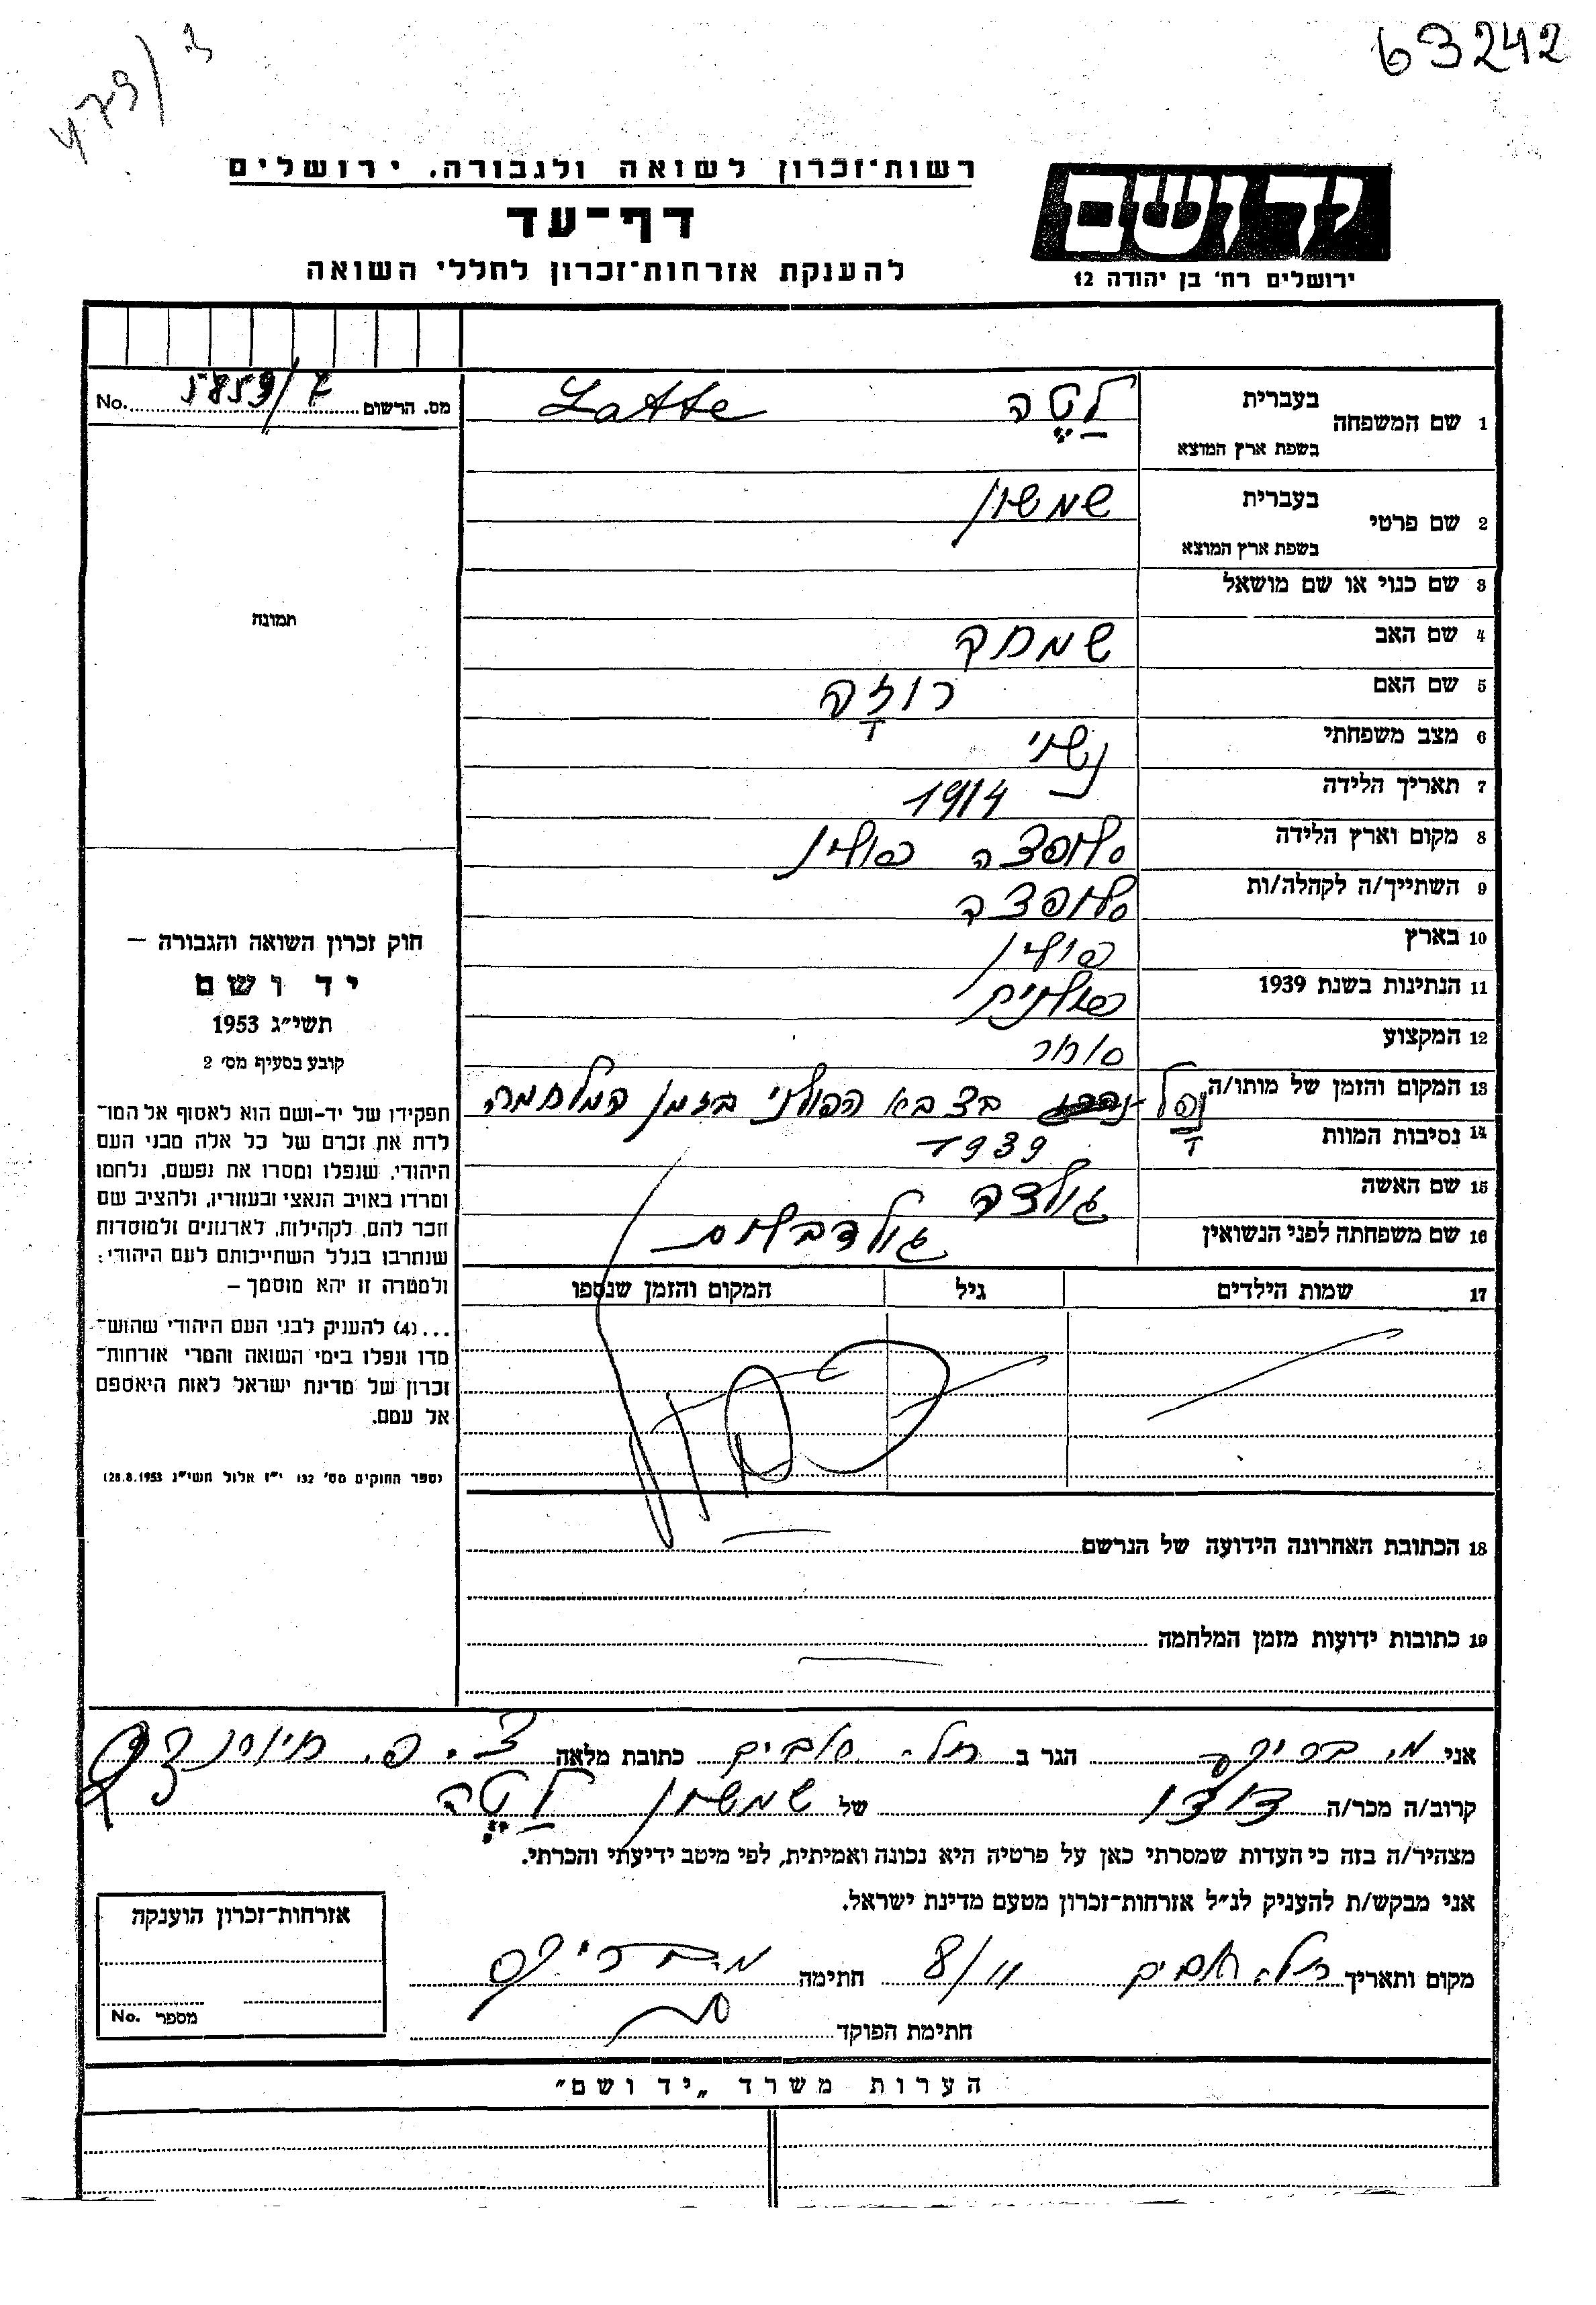 63242
479/3
רשות־זכרון לשואה ולגבורה, ירושלים
יד ושם
דף־עד
ירושלים רח' בן יהודה 12
להענקת אזרחות־זכרון לחללי השואה
מס. הרשום 5859/7 No.
1 שם המשפחה בעברית לטה Latte
בשפת ארץ המוצא
2 שם פרטי בעברית שמשון
בשפת ארץ המוצא
3 שם כנוי או שם מושאל
תמונה
4 שם האב שמחה
5 שם האם רוזה
6 מצב משפחתי נשוי
7 תאריך הלידה 1914
8 מקום וארץ הלידה סלופצה פולין
9 השתייך/ה לקהלה/ות סלופצה
10 בארץ פולין
11 הנתינות בשנת 1939 פולנית
12 המקצוע סוחר
13 המקום והזמן של מותו/ה נפל בצבא הפולני בזמן המלחמה
14 נסיבות המוות 1939
15 שם האשה גולדה
16 שם משפחתה לפני הנשואין
17 שמות הילדים גיל המקום והזמן שנספו
18 הכתובת האחרונה הידועה של הנרשם
19 כתובות ידועות מזמן המלחמה
חוק זכרון השואה והגבורה —
יד ושם
תשי״ג 1953
קובע בסעיף מס' 2
תפקידו של יד-ושם הוא לאסוף אל המו־
לדת את זכרם של כל אלה מבני העם
היהודי, שנפלו ומסרו את נפשם, נלחמו
ומרדו באויב הנאצי ובעוזריו, ולהציב שם
וזכר להם, לקהילות, לארגונים ולמוסדות
שנחרבו בגלל השתייכותם לעם היהודי;
ולמטרה זו יהא מוסמך —
...(4) להענין לבני העם היהודי שהוש־
מדו ונפלו בימי השואה והמרי אזרחות־
זכרון של מדינת ישראל לאות היאספם
אל עמם.
(ספר החוקים מס' 132 י״ז אלול תשי״ג 28.8.1953)
אני הגר ב תל-אביב כתובת מלאה
קרוב/ה מכר/ה דודו של שמשון לטה
מצהיר/ה בזה כי העדות שמסרתי כאן על פרטיה היא נכונה ואמיתית, לפי מיטב ידיעתי והכרתי.
אני מבקש/ת להעניק לנ״ל אזרחות־זכרון מטעם מדינת ישראל.
מקום ותאריך תל-אביב 8/11 חתימה
חתימת הפוקד
אזרחות־זכרון הוענקה
מספר No.
הערות משרד „יד ושם״